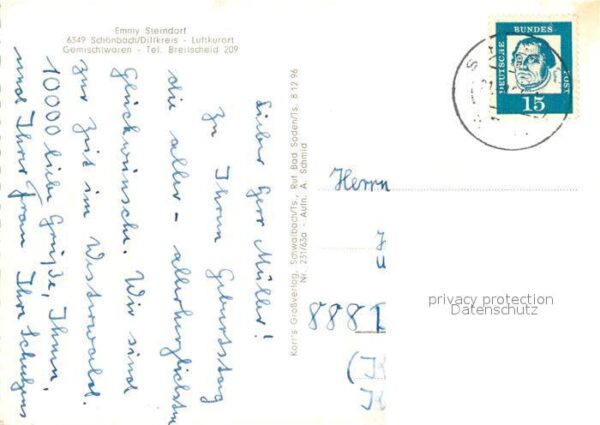 Emmy Sterndorf
6349 Schönbach/Dillkreis - Luftkurort
Gemischtwaren - Tel. Breitscheid 209
Lieber Herr Müller!
Zu Ihrem Geburtstag
die aller - allerherzlichsten
Glückwünsche. Wir sind
zur Zeit im Westerwald.
10000 liebe Grüße, Ihnen,
und Ihrer Frau Ihre Schulzens
Korr's Großverlag, Schwalbach/Ts., Ruf Bad Soden/Ts. 8 12 96
Nr. 231/63a - Aufn. A. Schmid
DEUTSCHE
BUNDES
POST
15
Herrn
8881
privacy protection
Datenschutz